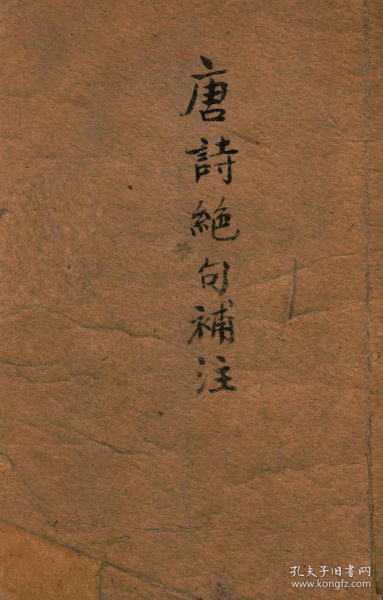 唐詩絕句補注
孔夫子旧书网
www.kongfz.com